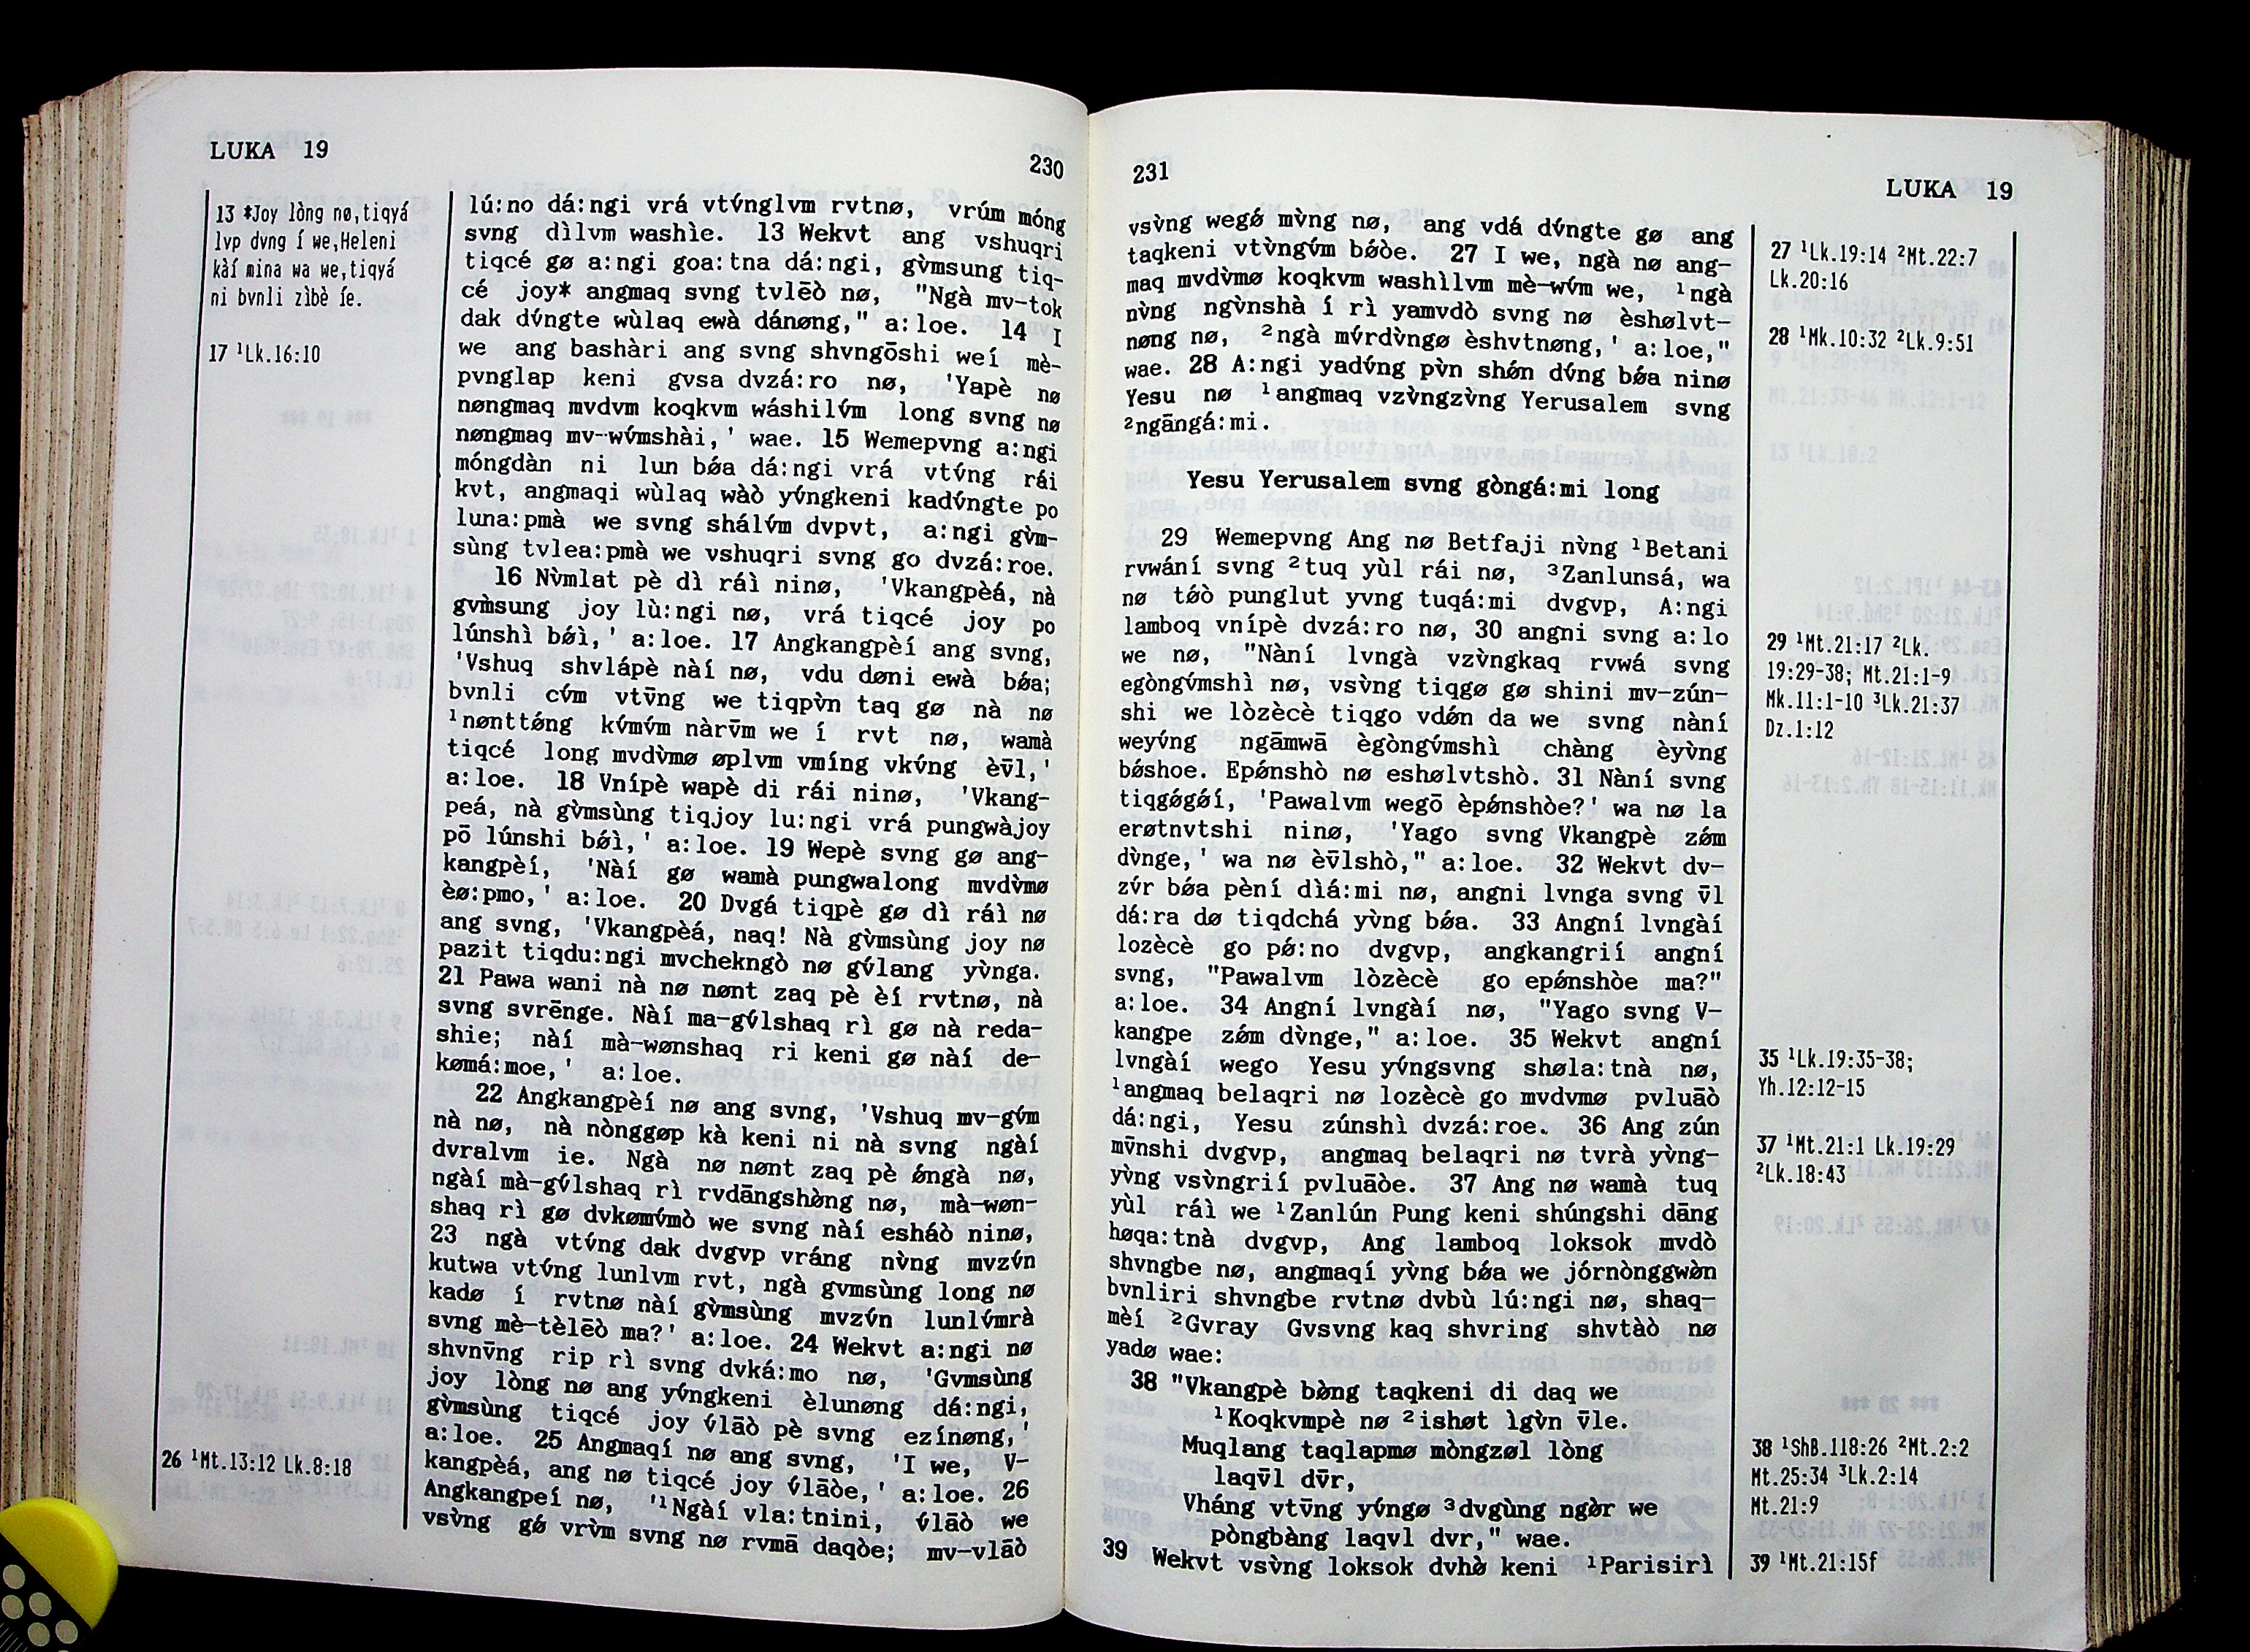 LUKA 19
230
13 *Joy lòng nø,tiqyá
lvp dvng í we,Heleni
kàí mina wa we,tiqyá
ni bvnli zìbè íe.
17 ¹Lk.16:10
26 ¹Mt.13:12 Lk.8:18
lú:no dá:ngi vrá vtv́nglvm rvtnø, vrúm móng
svng dìlvm washìe. 13 Wekvt ang vshuqri
tiqcé gø a:ngi goa:tna dá:ngi, gv̀msung tiq-
cé joy* angmaq svng tvlēò nø, "Ngà mv-tok
dak dv́ngte wùlaq ewà dánøng," a:loe. 14 I
we ang bashàri ang svng shvngōshi weí mè-
pvnglap keni gvsa dvzá:ro nø, 'Yapè nø
nøngmaq mvdvm koqkvm wáshilv́m long svng nø
nøngmaq mv-wv́mshài,' wae. 15 Wemepvng a:ngi
móngdàn ni lun bǿa dá:ngi vrá vtv́ng rái
kvt, angmaqi wùlaq wàò yv́ngkeni kadv́ngte po
luna:pmà we svng shálv́m dvpvt, a:ngi gv̀m-
sùng tvlea:pmà we vshuqri svng go dvzá:roe.
16 Nv̀mlat pè dì ráì ninø, 'Vkangpèá, nà
gv̀msung joy lù:ngi nø, vrá tiqcé joy po
lúnshì bǿì,' a:loe. 17 Angkangpèí ang svng,
'Vshuq shvlápè nàí nø, vdu døni ewà bǿa;
bvnli cv́m vtv̄ng we tiqpv̀n taq gø nà nø
¹nønttǿng kv́mv́m nàrv̄m we í rvt nø, wamà
tiqcé long mvdv̀mø øplvm vmíng vkv́ng èv̄l,'
a:loe. 18 Vnípè wapè di rái ninø, 'Vkang-
peá, nà gv̀msùng tiqjoy lu:ngi vrá pungwàjoy
pō lúnshi bǿì,' a:loe. 19 Wepè svng gø ang-
kangpèí, 'Nàí gø wamà pungwalong mvdv̀mø
èø:pmo,' a:loe. 20 Dvgá tiqpè gø dì ráì nø
ang svng, 'Vkangpèá, naq! Nà gv̀msùng joy nø
pazit tiqdu:ngi mvchekngò nø gv́lang yv̀nga.
21 Pawa wani nà nø nønt zaq pè èí rvtnø, nà
svng svrēnge. Nàí ma-gv́lshaq rì gø nà reda-
shie; nàí mà-wønshaq ri keni gø nàí de-
kømá:moe,' a:loe.
22 Angkangpèí nø ang svng, 'Vshuq mv-gv́m
nà nø, nà nònggøp kà keni ni nà svng ngàí
dvralvm ie. Ngà nø nønt zaq pè ǿngà nø,
ngàí mà-gv́lshaq rì rvdāngshø̀ng nø, mà-wøn-
shaq rì gø dvkømv́mò we svng nàí esháò ninø,
23 ngà vtv́ng dak dvgvp vráng nv̀ng mvzv́n
kutwa vtv́ng lunlvm rvt, ngà gvmsùng long nø
kadø í rvtnø nàí gv̀msùng mvzv́n lunlv́mrà
svng mè-tèlēò ma?' a:loe. 24 Wekvt a:ngi nø
shvnv̄ng rip rì svng dvká:mo nø, 'Gvmsùng
joy lòng nø ang yv́ngkeni èlunøng dá:ngi,
gv̀msùng tiqcé joy v́lāò pè svng ezínøng,'
a:loe. 25 Angmaqí nø ang svng, 'I we, V-
kangpèá, ang nø tiqcé joy v́lāòe,' a:loe. 26
Angkangpeí nø, '¹Ngàí vla:tnini, v́lāò we
vsv̀ng gǿ vrv̀m svng nø rvmā daqòe; mv-vlāò
231
LUKA 19
vsv̀ng wegǿ mv̀ng nø, ang vdá dv́ngte gø ang
taqkeni vtv̀ngv́m bǿòe. 27 I we, ngà nø ang-
maq mvdv̀mø koqkvm washìlvm mè-wv́m we, ¹ngà
nv̀ng ngv̀nshà í rì yamvdò svng nø èshølvt-
nøng nø, ²ngà mv́rdv̀ngø èshvtnøng,' a:loe,"
wae. 28 A:ngi yadv́ng pv̀n shǿn dv́ng bǿa ninø
Yesu nø ¹angmaq vzv̀ngzv̀ng Yerusalem svng
²ngāngá:mi.
Yesu Yerusalem svng gòngá:mi long
29 Wemepvng Ang nø Betfaji nv̀ng ¹Betani
rvwání svng ²tuq yùl rái nø, ³Zanlunsá, wa
nø tǿò punglut yvng tuqá:mi dvgvp, A:ngi
lamboq vnípè dvzá:ro nø, 30 angni svng a:lo
we nø, "Nàní lvngà vzv̀ngkaq rvwá svng
egòngv́mshì nø, vsv̀ng tiqgø gø shini mv-zún-
shi we lòzècè tiqgo vdǿn da we svng nàní
weyv́ng ngāmwā ègòngv́mshì chàng èyv̀ng
bǿshoe. Epǿnshò nø eshølvtshò. 31 Nàní svng
tiqgǿgǿí, 'Pawalvm wegō èpǿnshòe?' wa nø la
erøtnvtshi ninø, 'Yago svng Vkangpè zǿm
dv̀nge,' wa nø èv̄lshò," a:loe. 32 Wekvt dv-
zv́r bǿa pèní dìá:mi nø, angni lvnga svng v̄l
dá:ra dø tiqdchá yv̀ng bǿa. 33 Angní lvngàí
lozècè go pǿ:no dvgvp, angkangrií angní
svng, "Pawalvm lòzècè go epǿnshòe ma?"
a:loe. 34 Angní lvngàí nø, "Yago svng V-
kangpe zǿm dv̀nge," a:loe. 35 Wekvt angní
lvngàí wego Yesu yv́ngsvng shøla:tnà nø,
¹angmaq belaqri nø lozècè go mvdvmø pvluāò
dá:ngi, Yesu zúnshì dvzá:roe. 36 Ang zún
mv̄nshi dvgvp, angmaq belaqri nø tvrà yv̀ng-
yv̀ng vsv̀ngrií pvluāòe. 37 Ang nø wamà tuq
yùl ráì we ¹Zanlún Pung keni shúngshi dāng
høqa:tnà dvgvp, Ang lamboq loksok mvdò
shvngbe nø, angmaqí yv̀ng bǿa we jórnònggwø̀n
bvnliri shvngbe rvtnø dvbù lú:ngi nø, shaq-
mèí ²Gvray Gvsvng kaq shvring shvtàò nø
yadø wae:
38 "Vkangpè bø̀ng taqkeni di daq we
¹Koqkvmpè nø ²ishøt ìgv̀n v̄le.
Muqlang taqlapmø mòngzøl lòng
laqv̄l dv̄r,
Vháng vtv̄ng yv́ngø ³dvgùng ngø̀r we
pòngbàng laqvl dvr," wae.
39 Wekvt vsv̀ng loksok dvhø̀ keni ¹Parisirì
27 ¹Lk.19:14 ²Mt.22:7
Lk.20:16
28 ¹Mk.10:32 ²Lk.9:51
29 ¹Mt.21:17 ²Lk.
19:29-38; Mt.21:1-9
Mk.11:1-10 ³Lk.21:37
Dz.1:12
35 ¹Lk.19:35-38;
Yh.12:12-15
37 ¹Mt.21:1 Lk.19:29
²Lk.18:43
38 ¹ShB.118:26 ²Mt.2:2
Mt.25:34 ³Lk.2:14
Mt.21:9
39 ¹Mt.21:15f